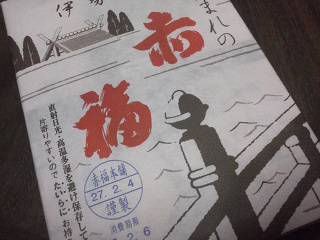 まれの
伊
赤
福
直射日光・高温多湿を避け保存して
片寄りやすいのでたいらにお持
赤福本舗
27.2.4
謹製
消費期限
2.6